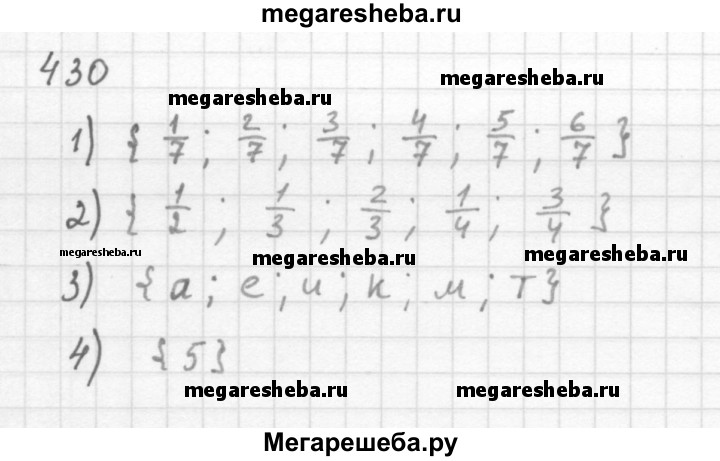 megaresheba.ru
430
megaresheba.ru
megaresheba.ru
1) { 1/7 ; 2/7 ; 3/7 ; 4/7 ; 5/7 ; 6/7 }
2) { 1/2 ; 1/3 ; 2/3 ; 1/4 ; 3/4 }
megaresheba.ru
megaresheba.ru
megaresheba.ru
3) { а ; е ; и ; к ; м ; т }
4) { 5 }
megaresheba.ru
megaresheba.ru
Мегарешеба.ру